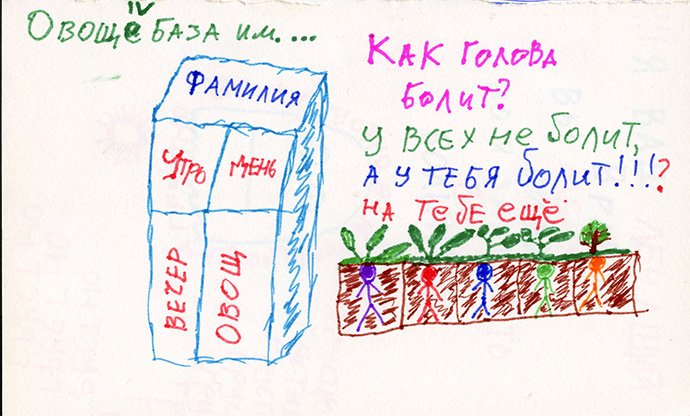 IV
ОВОЩеБАЗА ИМ. ...
ФАМИЛИЯ
УТРО
ДЕНЬ
ВЕЧЕР
ОВОЩ
КАК ГОЛОВА
БОЛИТ?
У ВСЕХ НЕ БОЛИТ,
А У ТЕБЯ БОЛИТ!!!?
НА ТЕБЕ ЕЩЁ